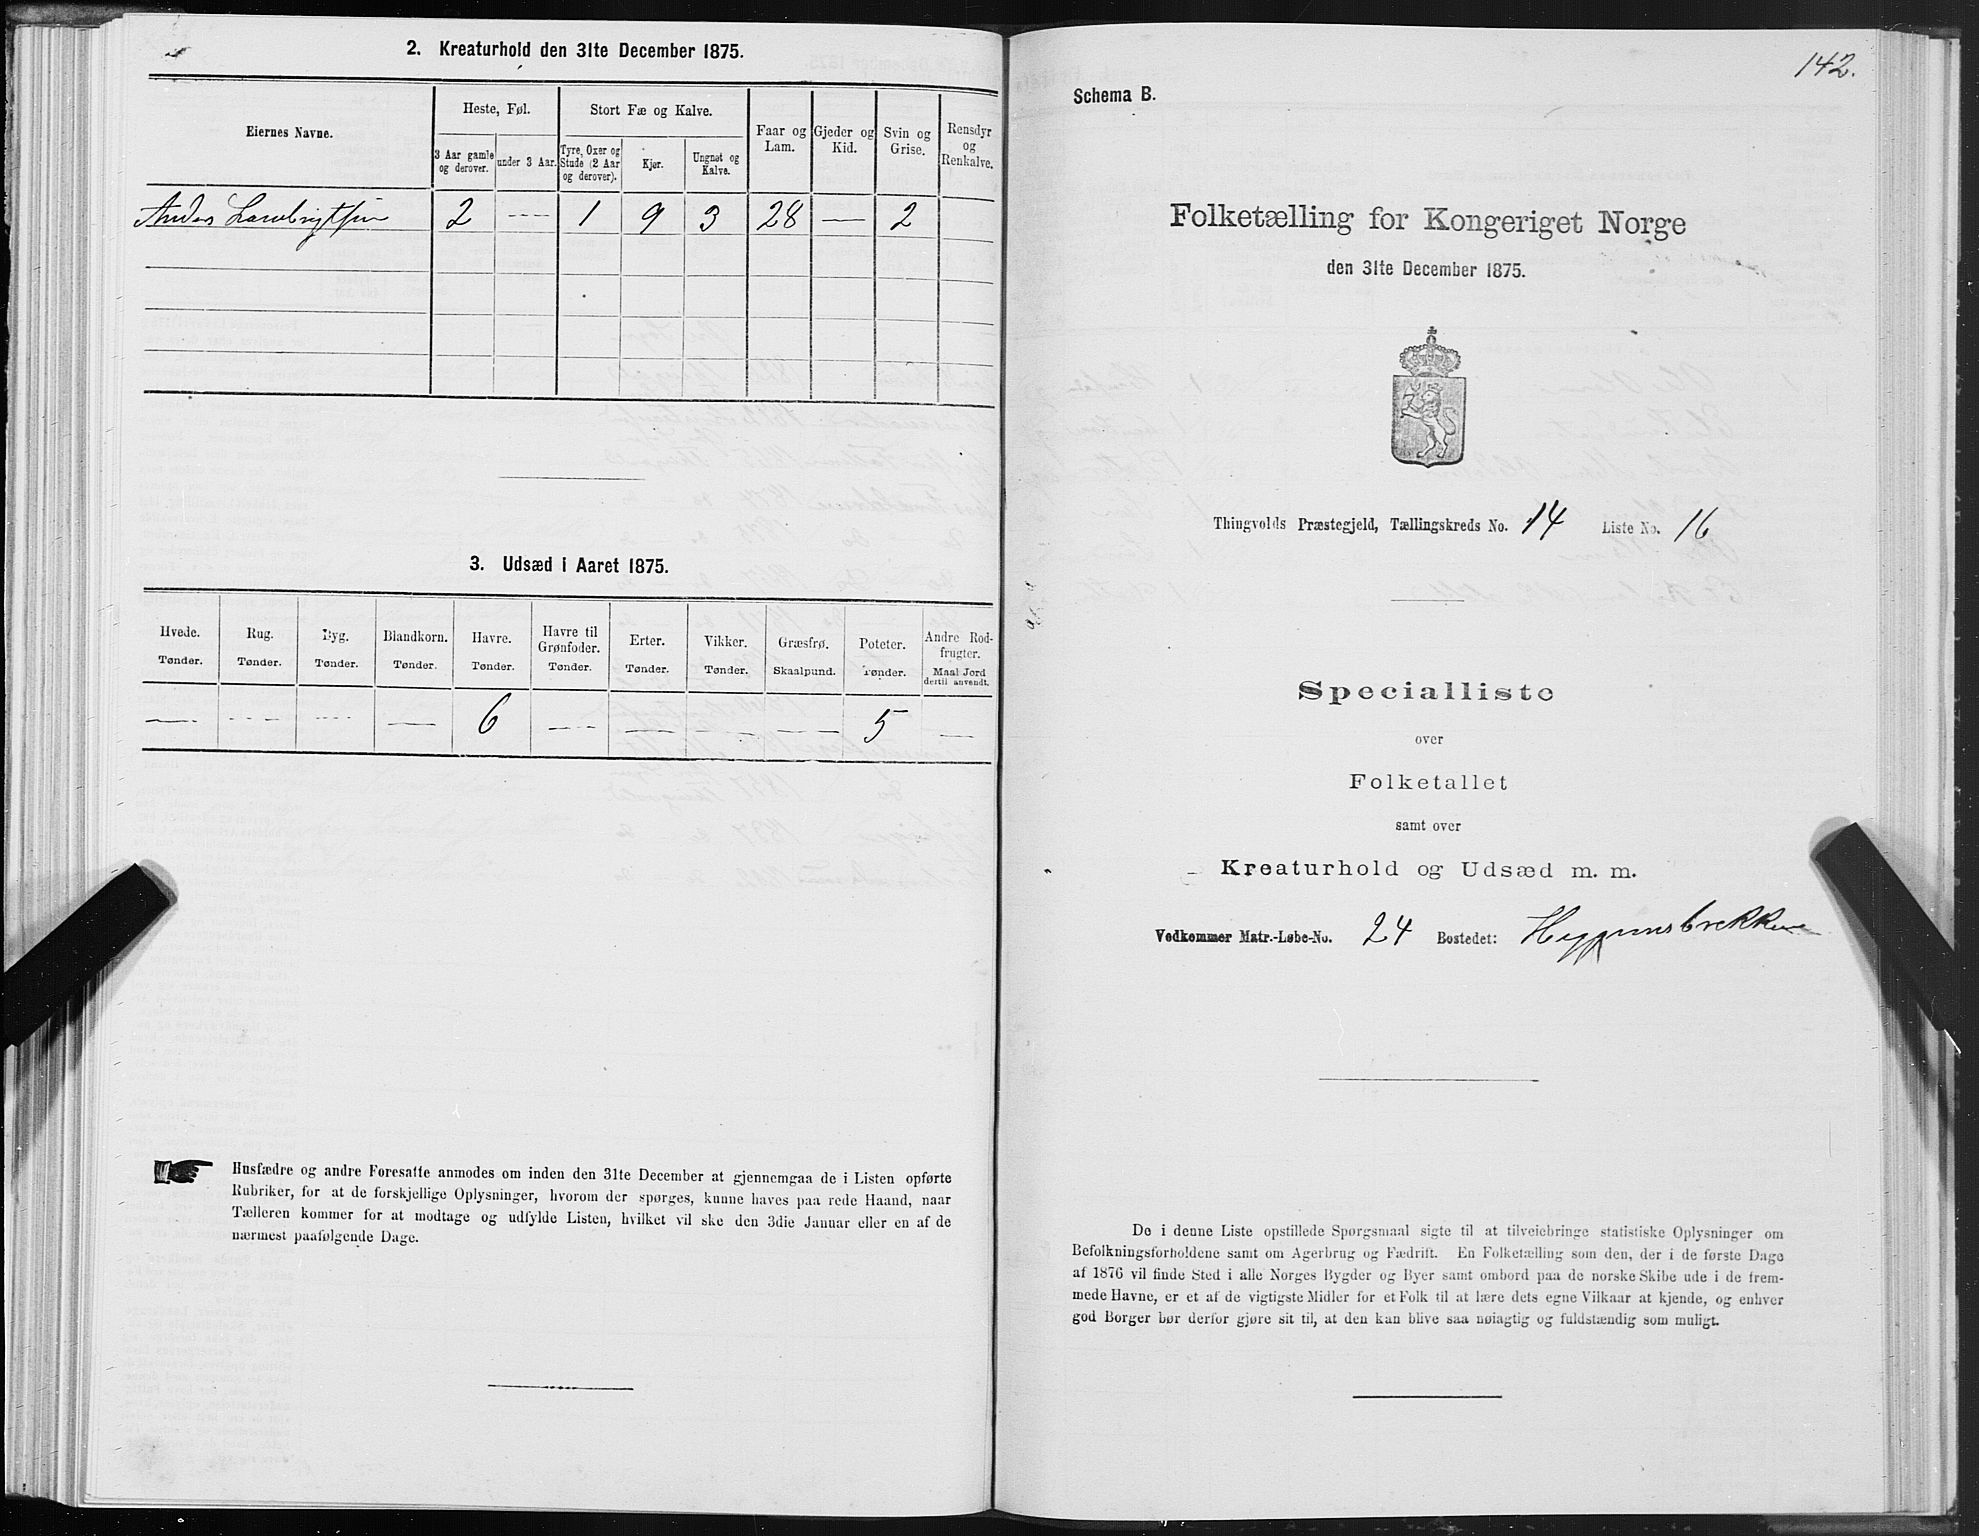 2. Kreaturhold den 31te December 1875.
Eiernes Navne.
Heste, Føl.
Stort Fæ og Kalve.
Faar og Lam.
Gjeder og Kid.
Svin og Grise.
Rensdyr og Renkalve.
3 Aar gamle og derover.
under 3 Aar.
Tyre, Oxer og Stude (2 Aar og derover).
Kjør.
Ungnøt og Kalve.
Anders Lambrigtsen 2 --- 1 9 3 28 — 2
3. Udsæd i Aaret 1875.
Hvede. Rug. Byg. Blandkorn. Havre. Havre til Grønfoder. Erter. Vikker. Græsfrø. Poteter. Andre Rodfrugter.
Tønder. Tønder. Tønder. Tønder. Tønder. Tønder. Tønder. Tønder. Skaalpund. Tønder. Maal Jord dertil anvendt.
— — — — 6 — — — — 5 —
Husfædre og andre Foresatte anmodes om inden den 31te December at gjennemgaa de i Listen opførte
Rubriker, for at de forskjellige Oplysninger, hvorom der spørges, kunne haves paa rede Haand, naar
Tælleren kommer for at modtage og udfylde Listen, hvilket vil ske den 3die Januar eller en af de
nærmest paafølgende Dage.
142.
Schema B.
Folketælling for Kongeriget Norge
den 31te December 1875.
Thingvolds Præstegjeld, Tællingskreds No. 14 Liste No. 16
Specialliste
over
Folketallet
samt over
Kreaturhold og Udsæd m. m.
Vedkommer Matr.-Løbe-No. 24 Bostedet:
De i denne Liste opstillede Spørgsmaal sigte til at tilveiebringe statistiske Oplysninger om
Befolkningsforholdene samt om Agerbrug og Fædrift. En Folketælling som den, der i de første Dage
af 1876 vil finde Sted i alle Norges Bygder og Byer samt ombord paa de norske Skibe ude i de frem-
mede Havne, er et af de vigtigste Midler for et Folk til at lære dets egne Vilkaar at kjende, og enhver
god Borger bør derfor gjøre sit til, at den kan blive saa nøiagtig og fuldstændig som muligt.